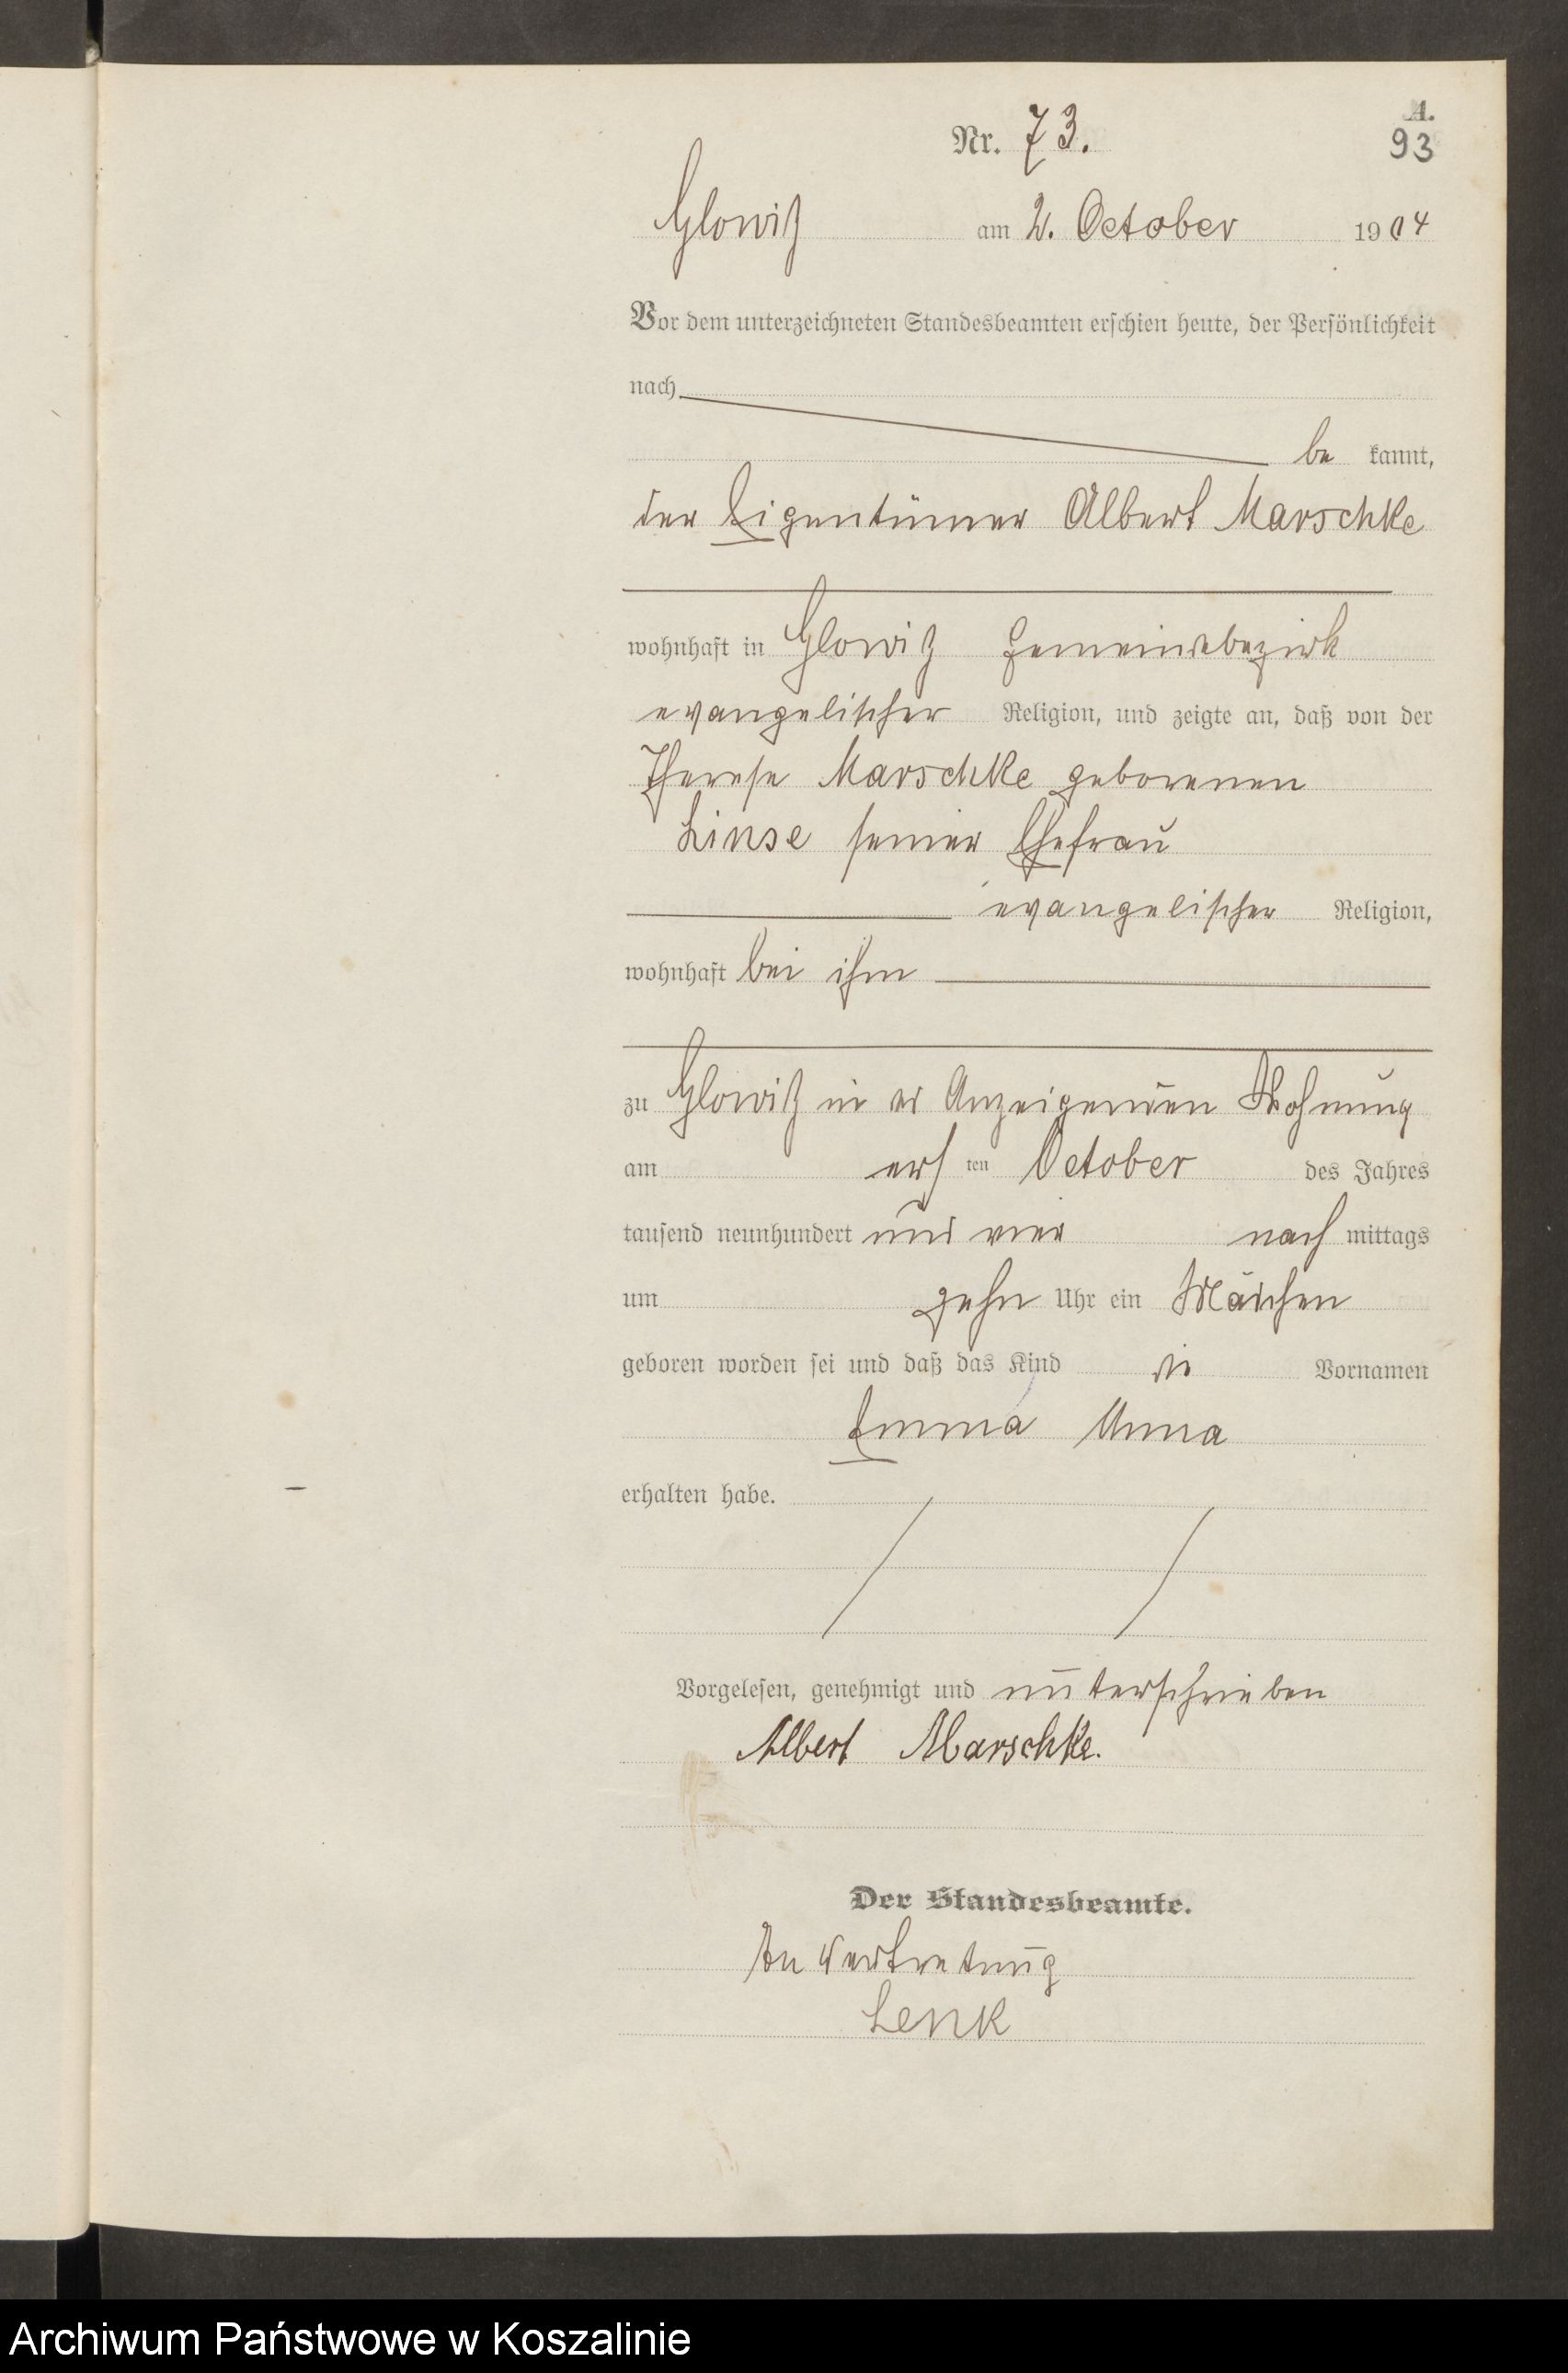 A.
Nr. 73.
93
Glowitz am 2. October 1904
Vor dem unterzeichneten Standesbeamten erschien heute, der Persönlichkeit
nach
be kannt,
der Eigentümer Albert Marschke
wohnhaft in Glowitz Gemeindebezirk
evangelischer Religion, und zeigte an, daß von der
Therese Marschke geborenen
Linse seiner Ehefrau
evangelischer Religion,
wohnhaft bei ihm
zu Glowitz in des Anzeigenden Wohnung
am ersten October des Jahres
tausend neunhundert und vier nachmittags
um zehn Uhr ein Mädchen
geboren worden sei und daß das Kind die Vornamen
Emma Anna
erhalten habe.
Vorgelesen, genehmigt und unterschrieben
Albert Marschke.
Der Standesbeamte.
In Vertretung
Lenk
Archiwum Państwowe w Koszalinie